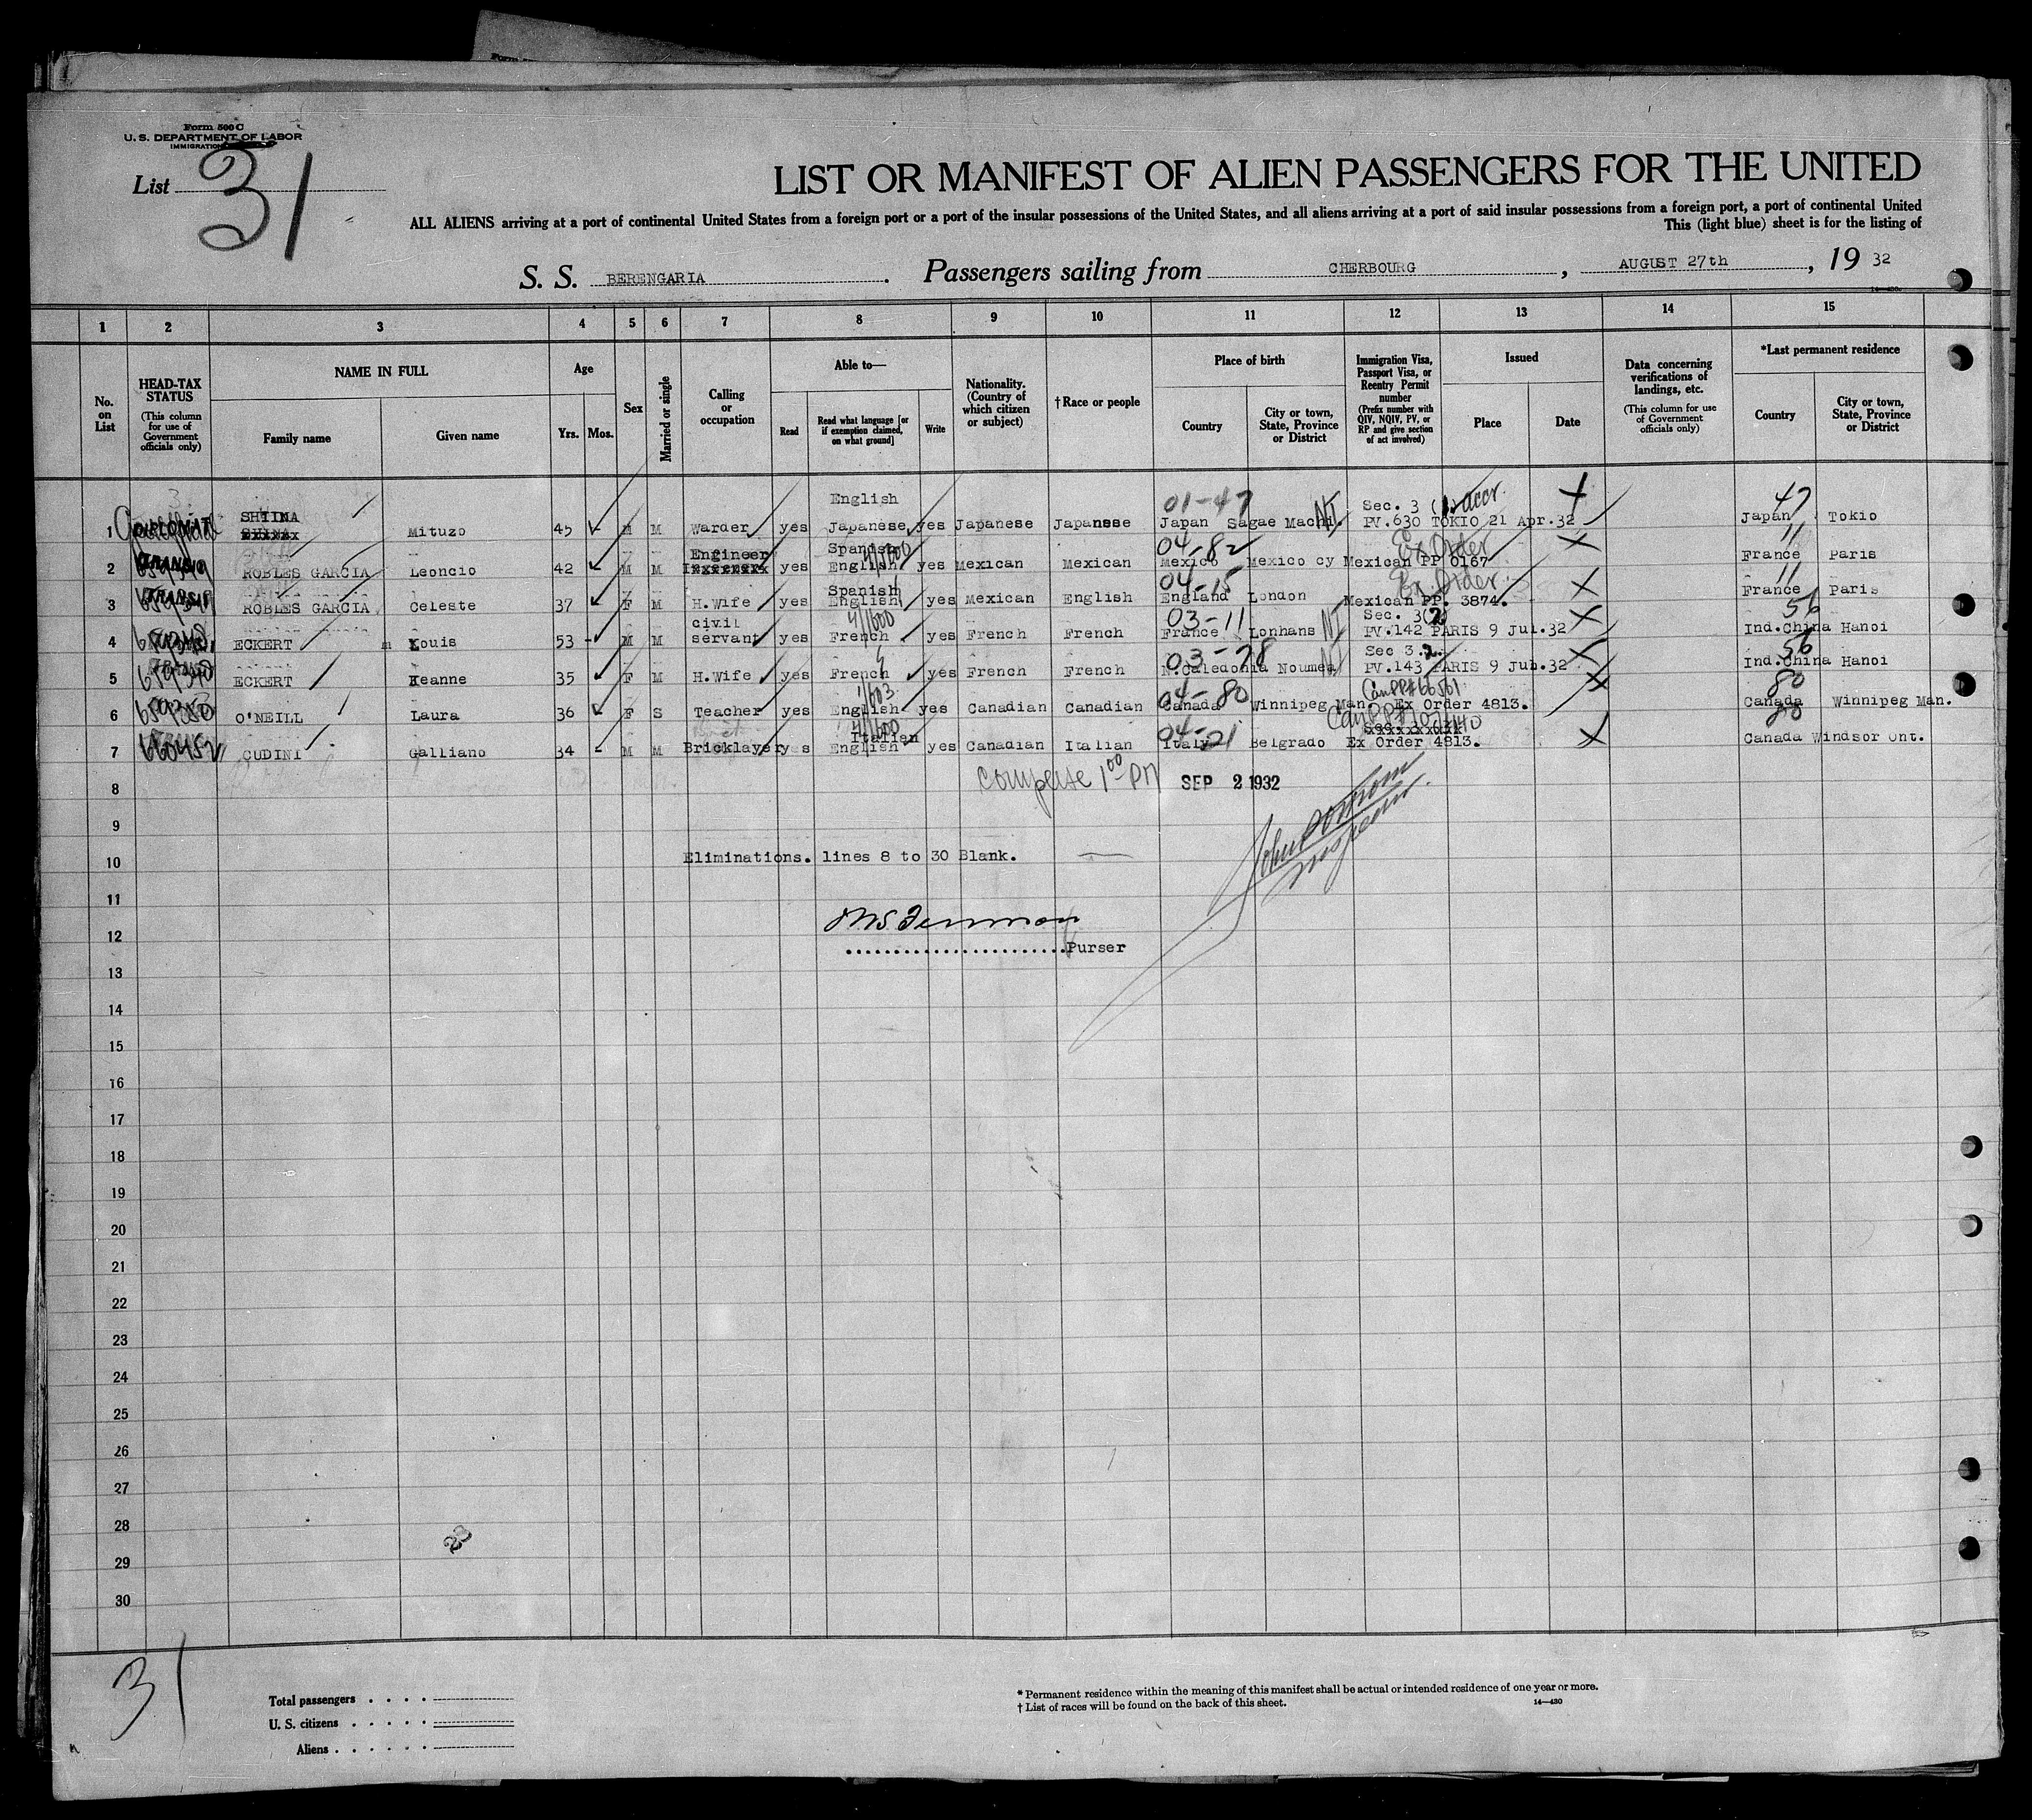 Form 500 C
U. S. DEPARTMENT OF LABOR
IMMIGRATION
List 31
LIST OR MANIFEST OF ALIEN PASSENGERS FOR THE UNITED
ALL ALIENS arriving at a port of continental United States from a foreign port or a port of the insular possessions of the United States, and all aliens arriving at a port of said insular possessions from a foreign port, a port of continental United
This (light blue) sheet is for the listing of
S. S. BERENGARIA. Passengers sailing from CHERBOURG, AUGUST 27th, 19 32
1 2 3 4 5 6 7 8 9 10 11 12 13 14 15
No. on List
HEAD-TAX STATUS
(This column for use of Government officials only)
NAME IN FULL
Family name
Given name
Age
Yrs. Mos.
Sex
Married or single
Calling or occupation
Able to—
Read
Read what language [or if exemption claimed, on what ground]
Write
Nationality. (Country of which citizen or subject)
†Race or people
Place of birth
Country
City or town, State, Province or District
Immigration Visa, Passport Visa, or Reentry Permit number
(Prefix number with QIV, NQIV, PV, or RP and give section of act involved)
Issued
Place
Date
Data concerning verifications of landings, etc.
(This column for use of Government officials only)
*Last permanent residence
Country
City or town, State, Province or District
English 01-47 Sec. 3 (1) 47
SHIINA
1 DIPLOMAT Mituzo 45 M M Warder yes Japanese yes Japanese Japanese Japan Sagae Machi. NI PV.630 TOKIO 21 Apr.32 Japan Tokio
Engineer Spanish 04-82 Ex Order 11
2 ROBLES GARCIA Leoncio 42 M M yes English yes Mexican Mexican Mexico Mexico cy Mexican PP 0167 France Paris
Spanish 04-15 Ex. Order 11
3 ROBLES GARCIA Celeste 37 F M H.Wife yes English yes Mexican English England London Mexican PP. 3874. France Paris
civil 4/1600 03-11 Sec. 3(2) 56
4 ECKERT Louis 53 M M servant yes French yes French French France Lonhans NI PV.142 PARIS 9 Jul.32 Ind.China Hanoi
03-78 Sec 3.2. 56
5 ECKERT Jeanne 35 F M H.Wife yes French yes French French N.Caledonia Noumea NI PV.143 PARIS 9 Jul.32 Ind.China Hanoi
04-80 CanPP#66561 80
6 O'NEILL Laura 36 F S Teacher yes English yes Canadian Canadian Canada Winnipeg Man. Ex Order 4813. Canada Winnipeg Man.
4/1600 Italian 04-21 80
7 CUDINI Galliano 34 M M Bricklayer yes English yes Canadian Italian Italy Belgrado Ex Order 4813. Canada Windsor Ont.
8 1 00 PM SEP 2 1932
9
10 Eliminations. lines 8 to 30 Blank.
11
12
Purser
13
14
15
16
17
18
19
20
21
22
23
24
25
26
27
28
29
30
31
Total passengers
U. S. citizens
Aliens
* Permanent residence within the meaning of this manifest shall be actual or intended residence of one year or more.
† List of races will be found on the back of this sheet. 14—430